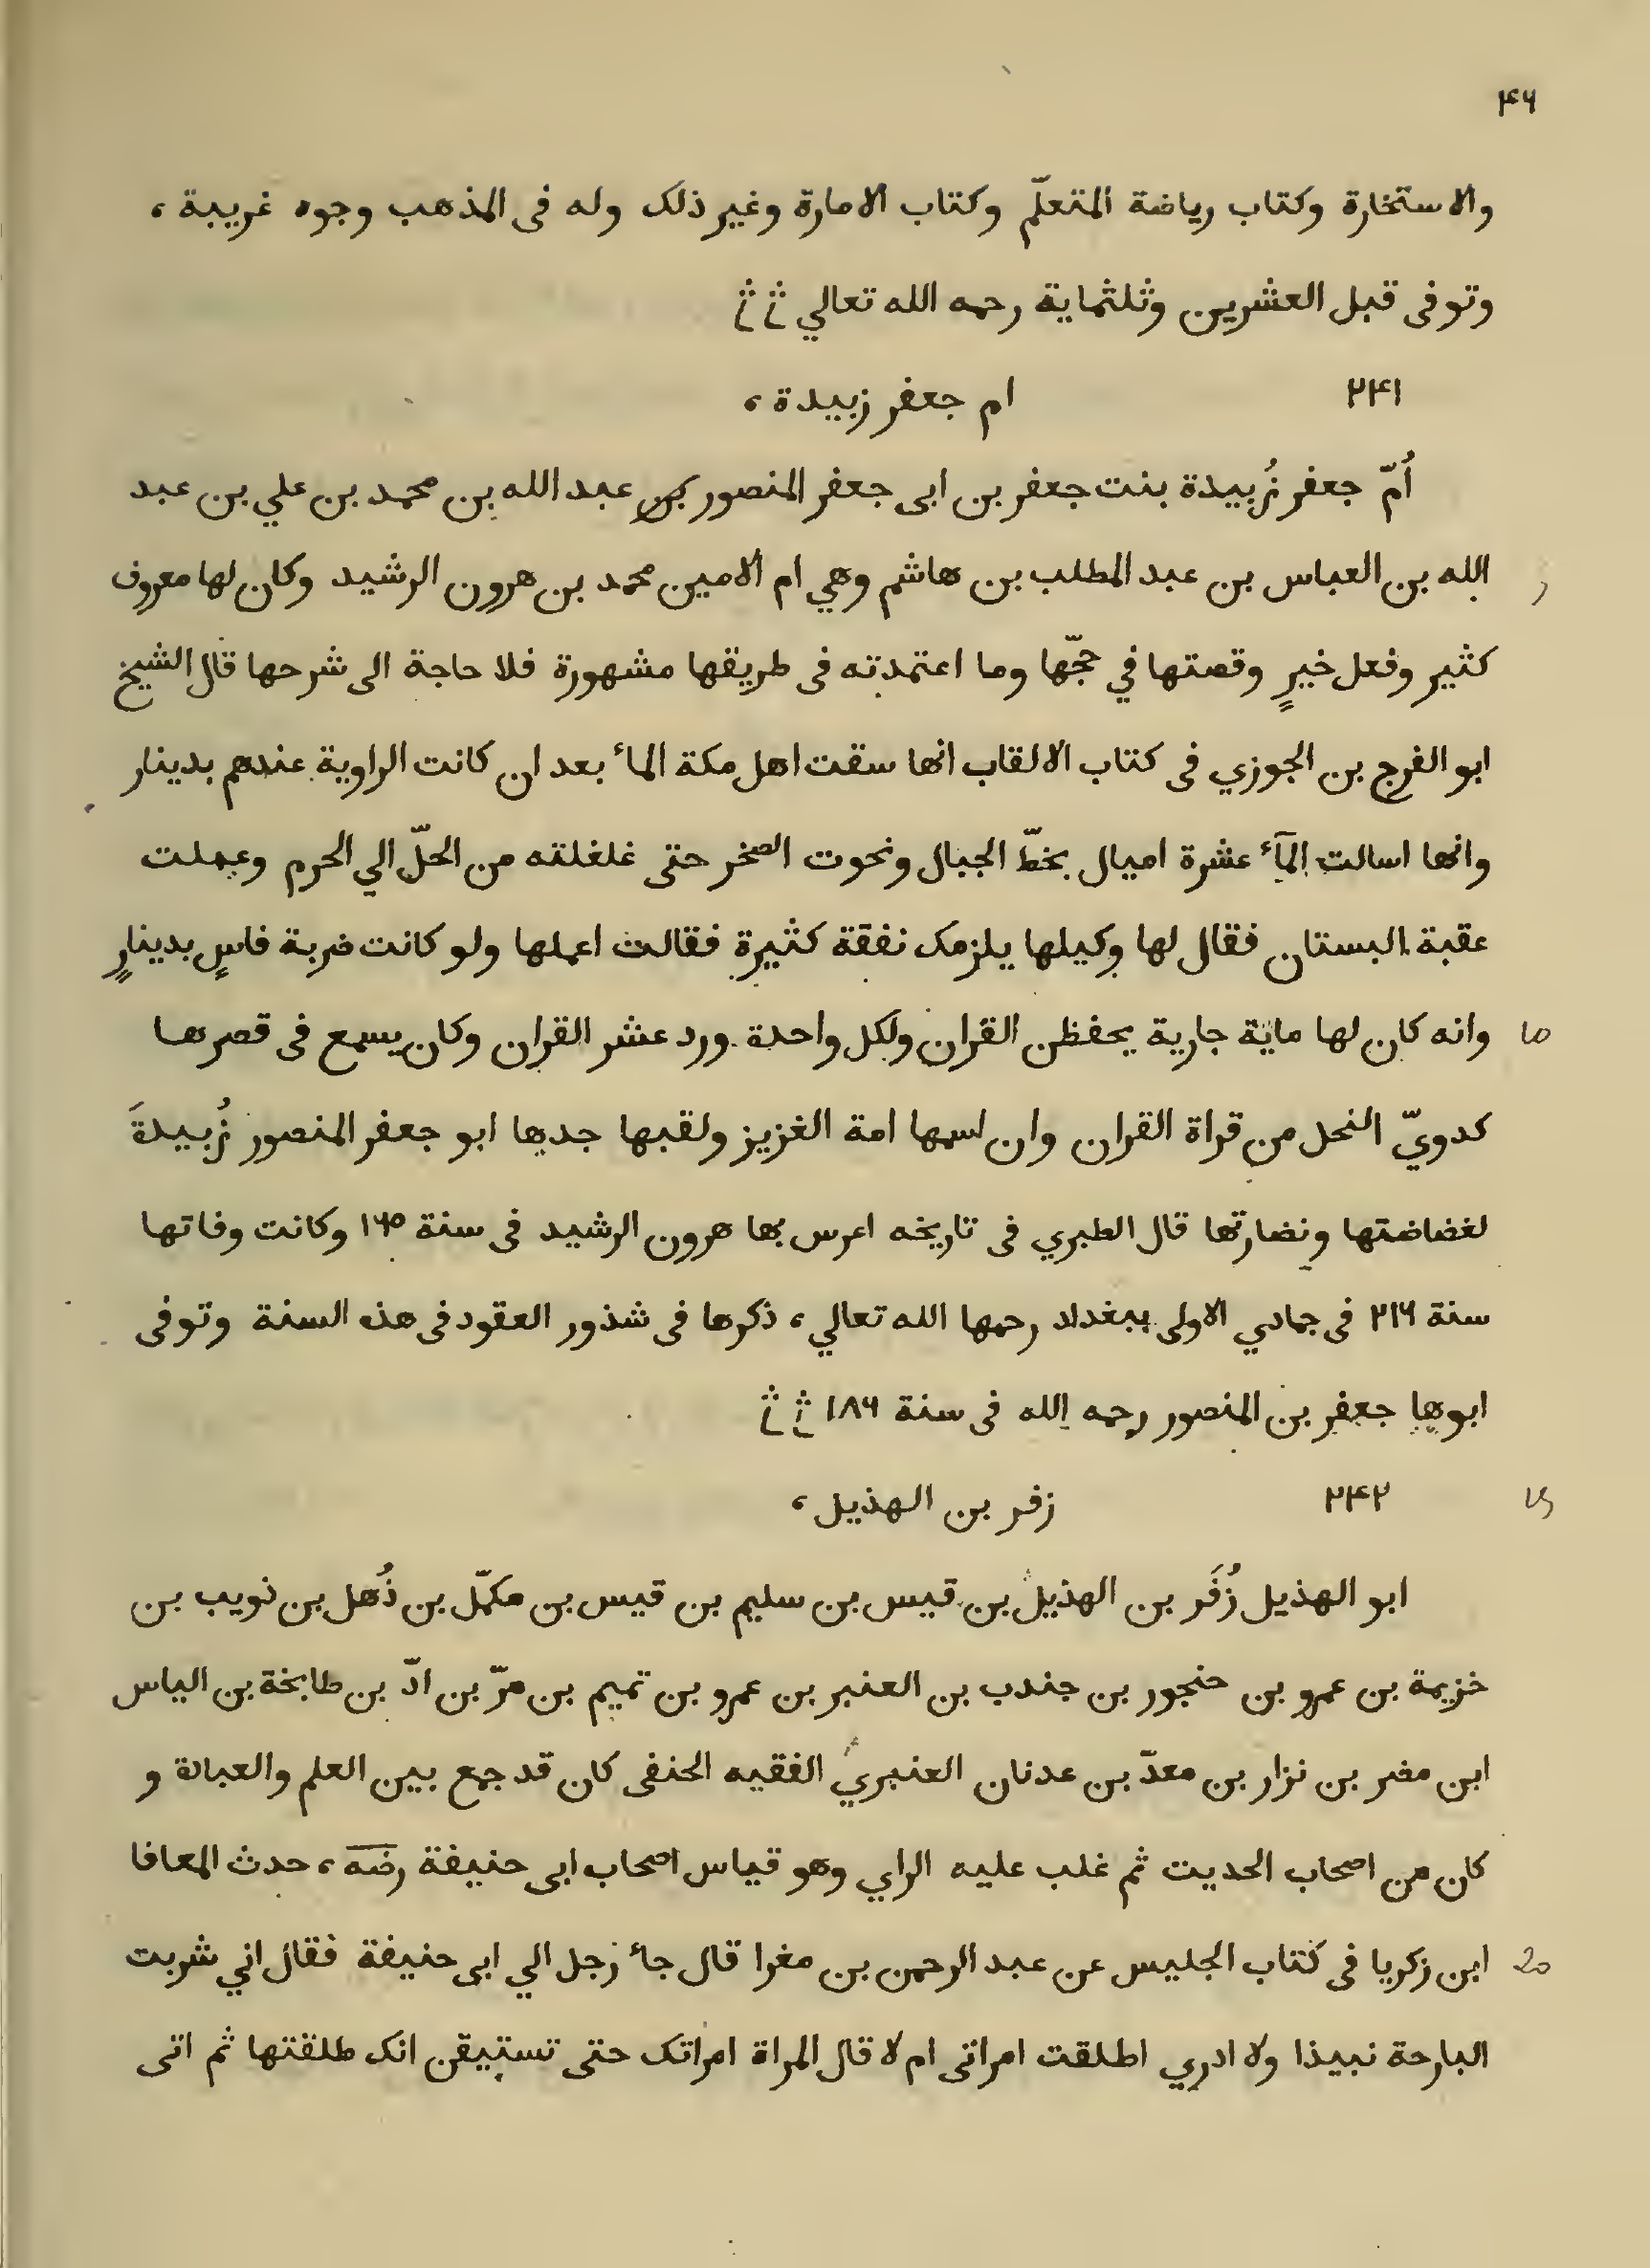 ۴۶
والاستخارة وكتاب رياضة المتعلّم وكتاب الامارة وغير ذلک وله فى المذهب وجوه غريبة ،
وتوفى قبل العشرين وثلثماية رحمه الله تعالي
۲۴۱ ام جعفر زبيدة ،
أُمّ جعفر زُبيدة بنت جعفر بن ابى جعفر المنصور بن عبد الله بن محمد بن علي بن عبد
الله بن العباس بن عبد المطلب بن هاشم وهي ام الامين محمد بن هرون الرشيد وكان لها معروف
كثير وفعل خيرٍ وقصتها في حجّها وما اعتمدته فى طريقها مشهورة فلا حاجة الى شرحها قال الشيخ
ابو الفرج بن الجوزي فى كتاب الالقاب انها سقت اهل مكة المأ بعد ان كانت الراوية عندهم بدينار
وانها اسالت المآء عشرة اميال بخطّ الجبال ونحوت الصخر حتى غلغلته من الحلّ الي الحرم وعملت
عقبة البستان فقال لها وكيلها يلزمک نفقة كثيرة فقالت اعملها ولو كانت ضربة فاسٍ بدينارٍ
10 وانه كان لها ماية جارية يحفظن القران ولكل واحدة ورد عشر القران وكان يسمع فى قصرها
كدويّ النحل من قراة القران وان اسمها امة الغزيز ولقبها جدها ابو جعفر المنصور زُبيدةَ
لغضاضتها ونضارتها قال الطبري فى تاريخه اعرس بها هرون الرشيد فى سنة ۱۶۵ وكانت وفاتها
سنة ۲۱۶ فى جمادي الاولى ببغداد رحمها الله تعالي ، ذكرها فى شذور العقود فى هذه السنة وتوفى
ابوها جعفر بن المنصور رحمه الله فى سنة ۱۸۶
15 ۲۴۲ زفر بن الهذيل ،
ابو الهذيل زُفَر بن الهذيل بن قيس بن سليم بن قيس بن مكمّل بن ذُهل بن نويب بن
خزيمة بن عمرو بن حنجور بن جندب بن العنبر بن عمرو بن تميم بن مرّ بن ادّ بن طابخة بن الياس
ابن مضر بن نزار بن معدّ بن عدنان العنبري الفقيه الحنفى كان قد جمع بين العلم والعبادة و
كان من اصحاب الحديت ثم غلب عليه الراي وهو قياس اصحاب ابى حنيفة رضه ، حدث المعافا
20 ابن زكريا فى كتاب الجليس عن عبد الرحمن بن مغرا قال جأ رجل الي ابى حنيفة فقال اني شربت
البارحة نبيذا ولا ادري اطلقت امراتى ام لا قال المراة امراتک حتى تستيقن انک طلقتها ثم اتى